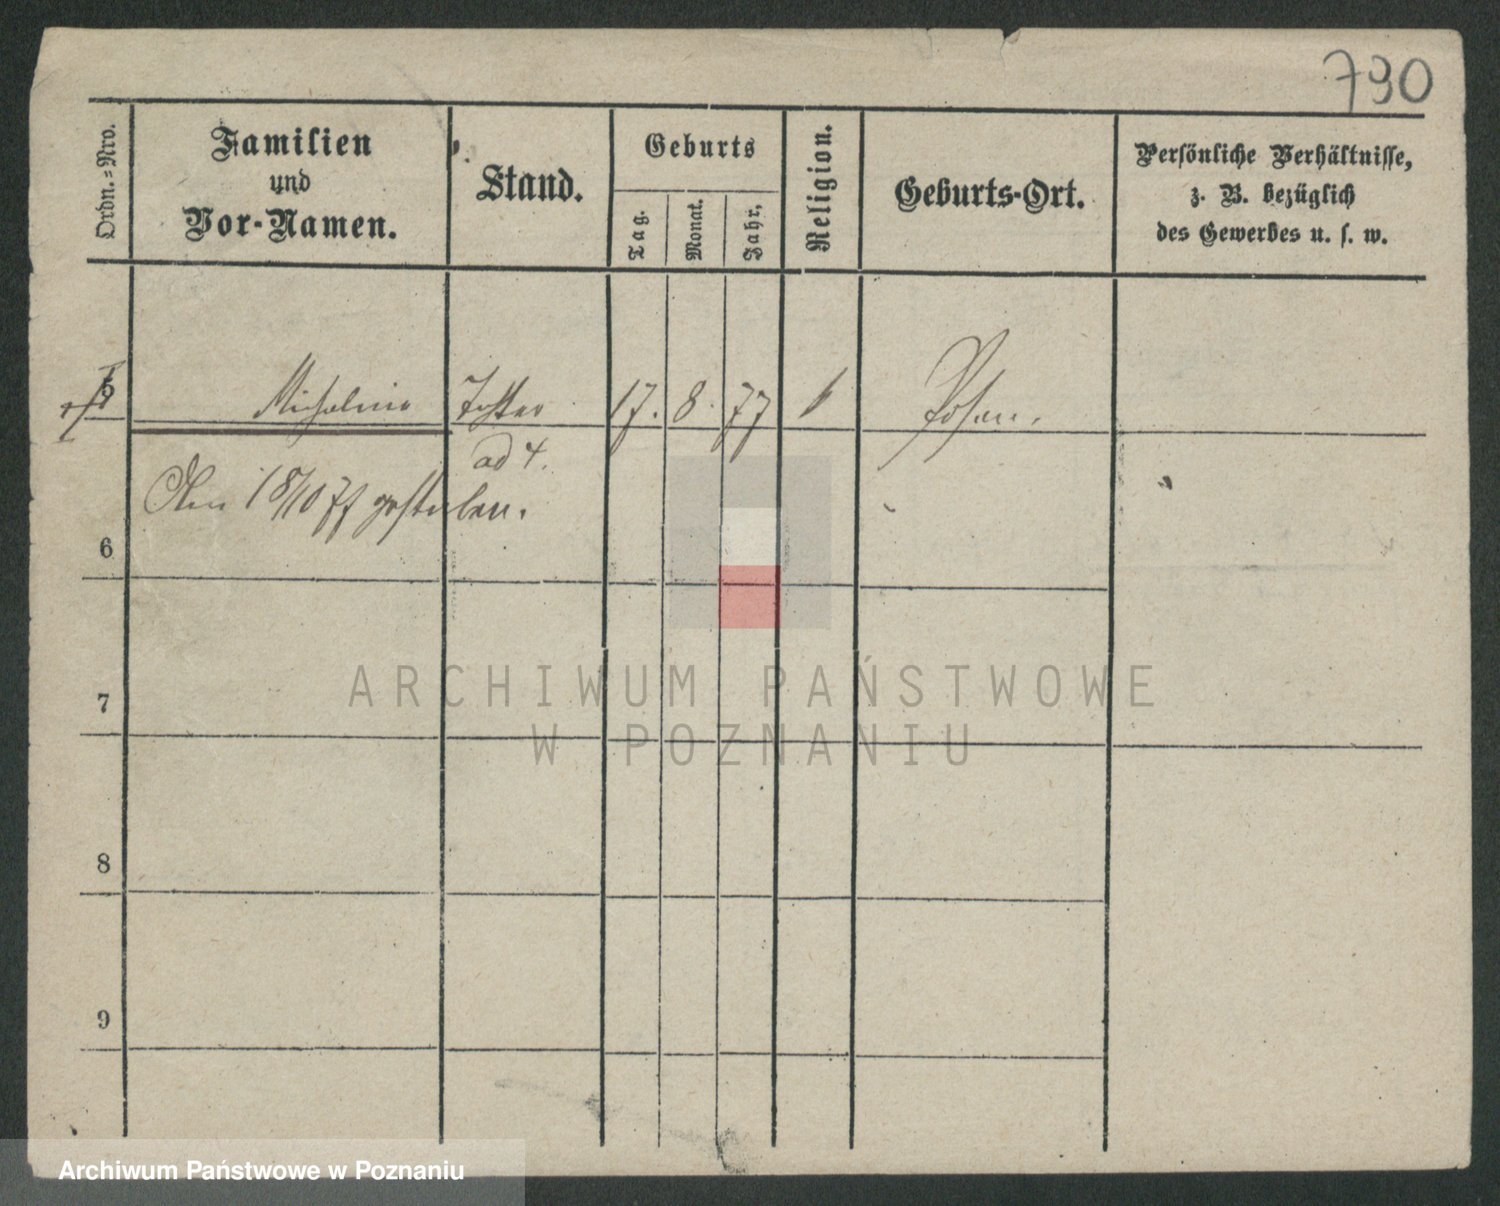 790
Ordn.=Nro.
Familien
und
Vor-Namen.
Stand.
Geburts
Tag.
Monat.
Jahr,
Religion.
Geburts-Ort.
Persönliche Verhältnisse,
z. B. bezüglich
des Gewerbes u. s. w.
5 Michalina Tochter 17. 8. 77 Posen.
ad 4.
18/10 77 gestorben.
6
7
8
9
ARCHIWUM PAŃSTWOWE
W POZNANIU
Archiwum Państwowe w Poznaniu